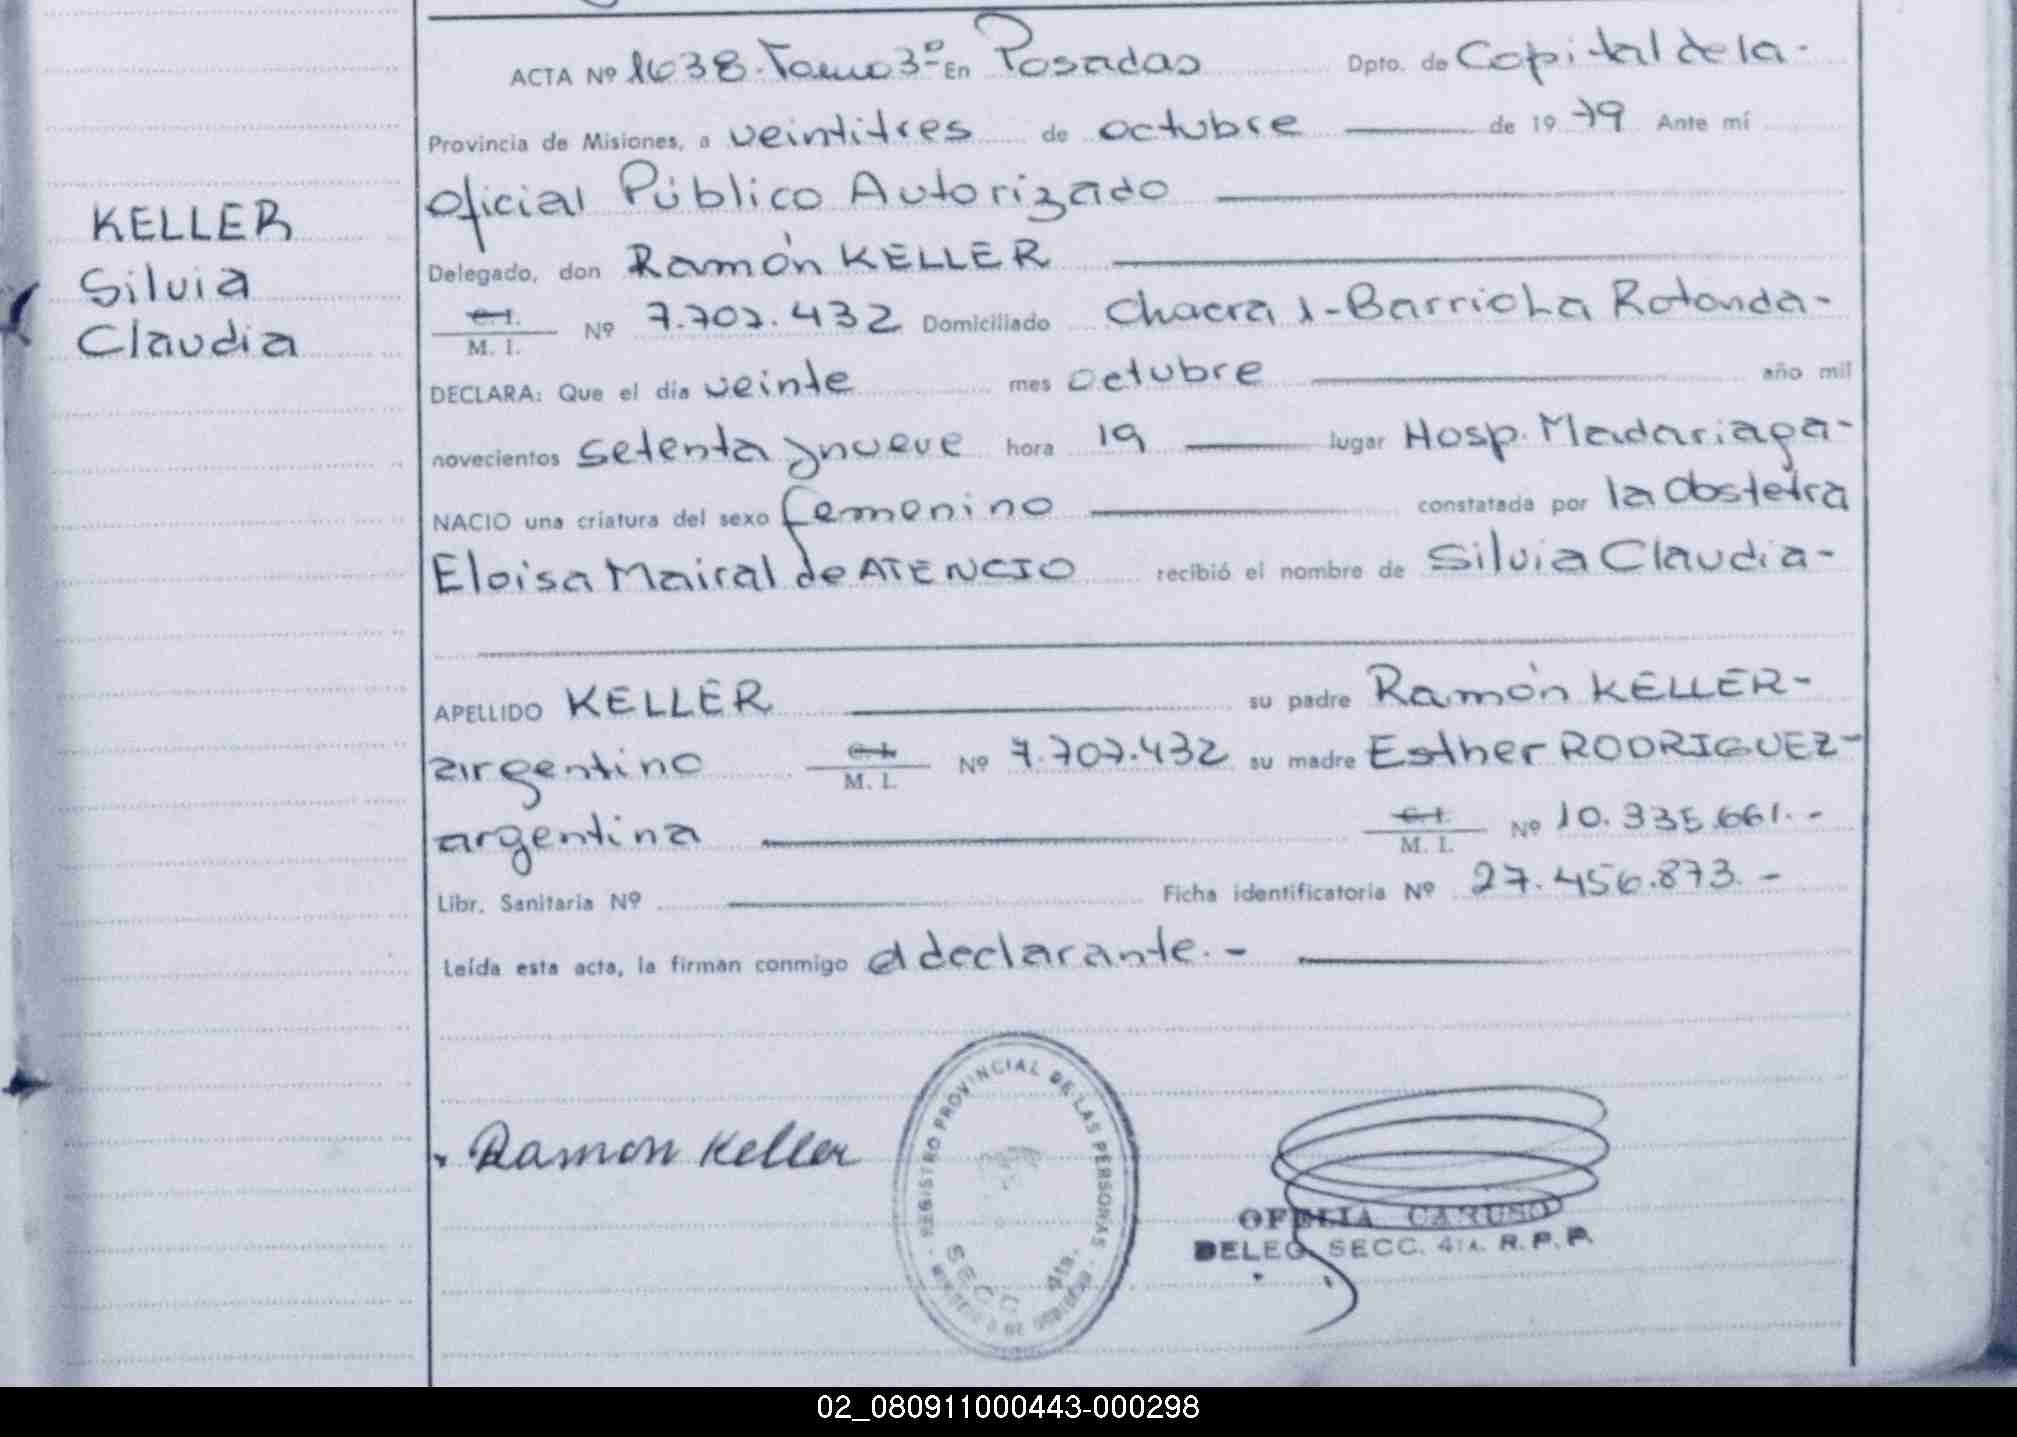 KELLER
Silvia
Claudia
ACTA Nº 1638. Tomo 3º En Posadas Dpto. de Capital de la-
Provincia de Misiones, a veintitres de octubre de 1979 Ante mí
Oficial Público Autorizado
Delegado, don Ramón KELLER
C. I.
M. I. Nº 7.707.432 Domiciliado Chacra 1-Barrio La Rotonda-
DECLARA: Que el día veinte mes octubre año mil
novecientos setenta y nueve hora 19 lugar Hosp. Madariaga-
NACIO una criatura del sexo femenino constatada por la Obstetra
Eloisa Mairal de ATENCIO recibió el nombre de Silvia Claudia-
APELLIDO KELLER su padre Ramón KELLER-
argentino C. I.
M. I. Nº 7.707.432 su madre Esther RODRIGUEZ-
argentina C. I.
M. I. Nº 10.335.661.-
Libr. Sanitaria Nº Ficha identificatoria Nº 27.456.873.-
Leída esta acta, la firman conmigo el declarante.-
Ramon Keller
REGISTRO PROVINCIAL DE LAS PERSONAS
SECC. 4ta.
OFELIA CARUSO
DELEG. SECC. 4TA. R. P. P.
02_080911000443-000298